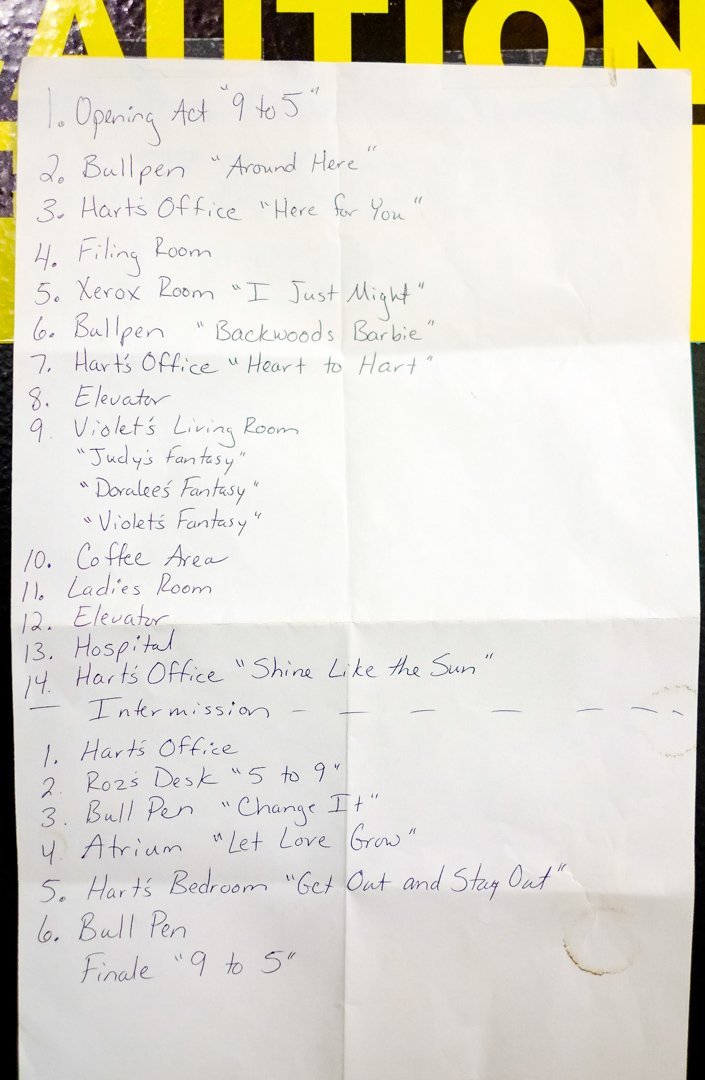 CAUTION
1. Opening Act "9 to 5"
2. Bullpen "Around Here"
3. Hart's Office "Here for You"
4. Filing Room
5. Xerox Room "I Just Might"
6. Bullpen "Backwoods Barbie"
7. Hart's Office "Heart to Hart"
8. Elevator
9. Violet's Living Room
"Judy's Fantasy"
"Doralee's Fantasy"
"Violet's Fantasy"
10. Coffee Area
11. Ladies Room
12. Elevator
13. Hospital
14. Hart's Office "Shine Like the Sun"
— Intermission — — — — — —
1. Hart's Office
2. Roz's Desk "5 to 9"
3. Bull Pen "Change It"
4. Atrium "Let Love Grow"
5. Hart's Bedroom "Get Out and Stay Out"
6. Bull Pen
Finale "9 to 5"